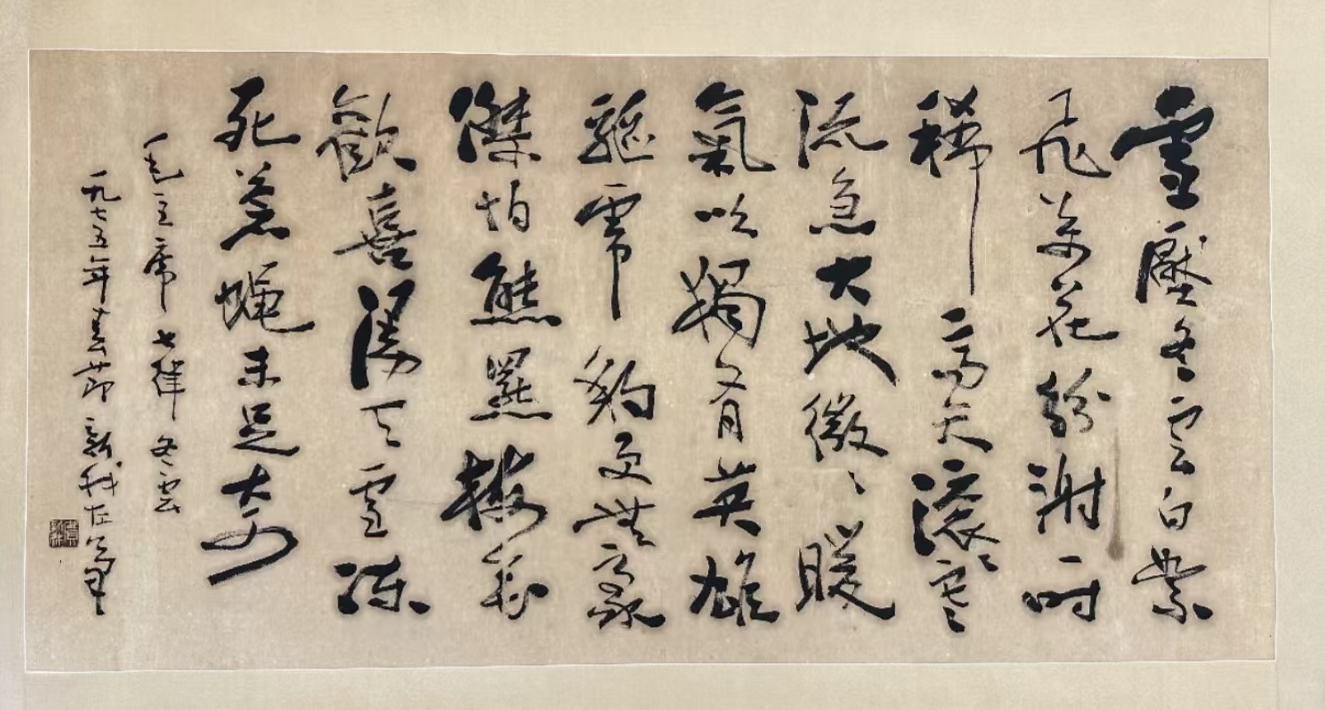 雪壓冬雲白絮
飛萬花紛謝一时
稀高天滾〻寒
流急大地微〻暖
氣吹獨有英雄
驅虎豹更無豪
傑怕熊羆梅花
歡喜漫天雪凍
死蒼蠅未足奇
毛主席七律冬雲
一九七五年春節新我左筆